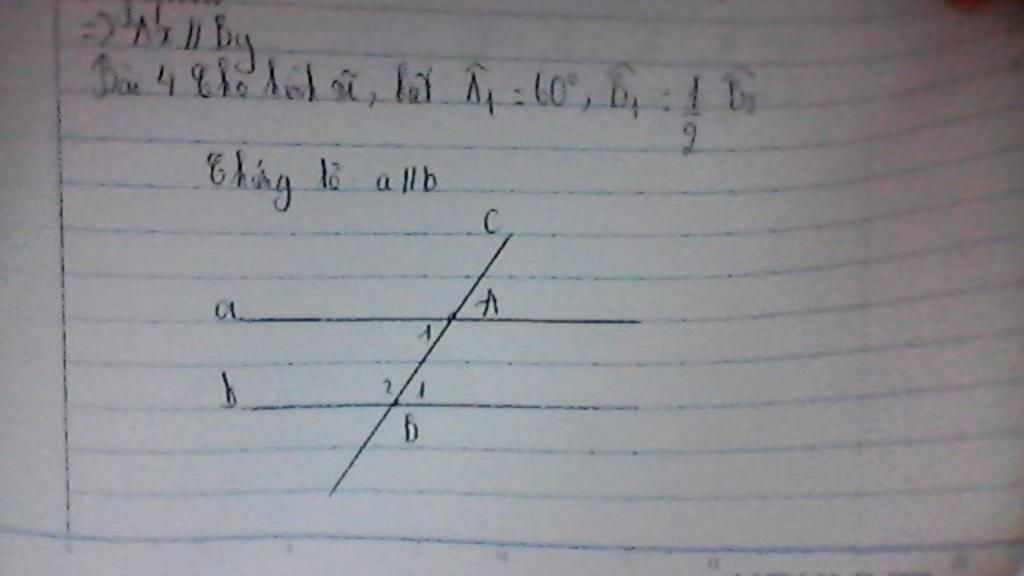 => Ax // By
Bài 4 Cho hình vẽ, biết Â₁ = 60°, B̂₁ = 1/2 B̂₂
Chứng tỏ a // b
C
a A
1
b 2 1
B